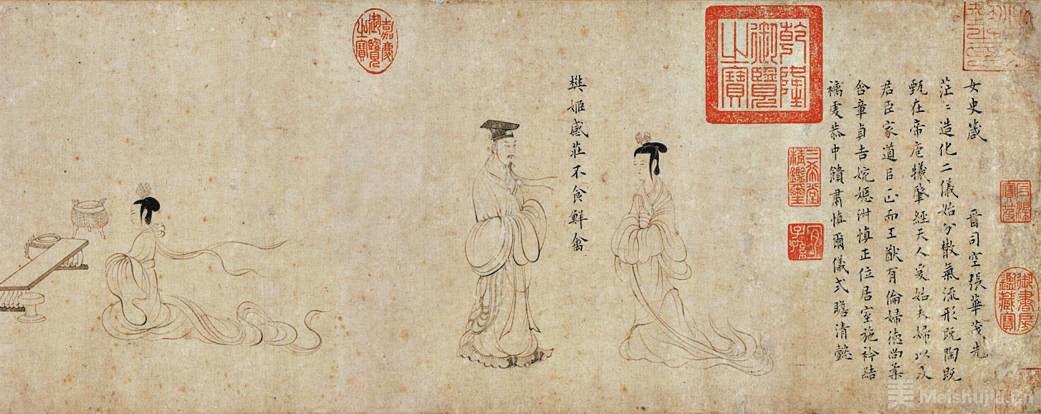 女史箴 晉司空張華茂先
茫〻造化二儀始分散氣流形既陶既
甄在帝庖犧肇經天人爰始夫婦以及
君臣家道㠯正而王猷有倫婦德尚柔
含章貞吉婉嫕淑慎正位居室施衿結
褵虔恭中饋肅慎爾儀式瞻清懿
乾隆御覽之寶
三希堂精鑑璽
宜子孫
石渠寶笈
御書房鑑藏寶
樊姬感莊不食鮮禽
嘉慶御覽之寶
美 Meishujia.Cn